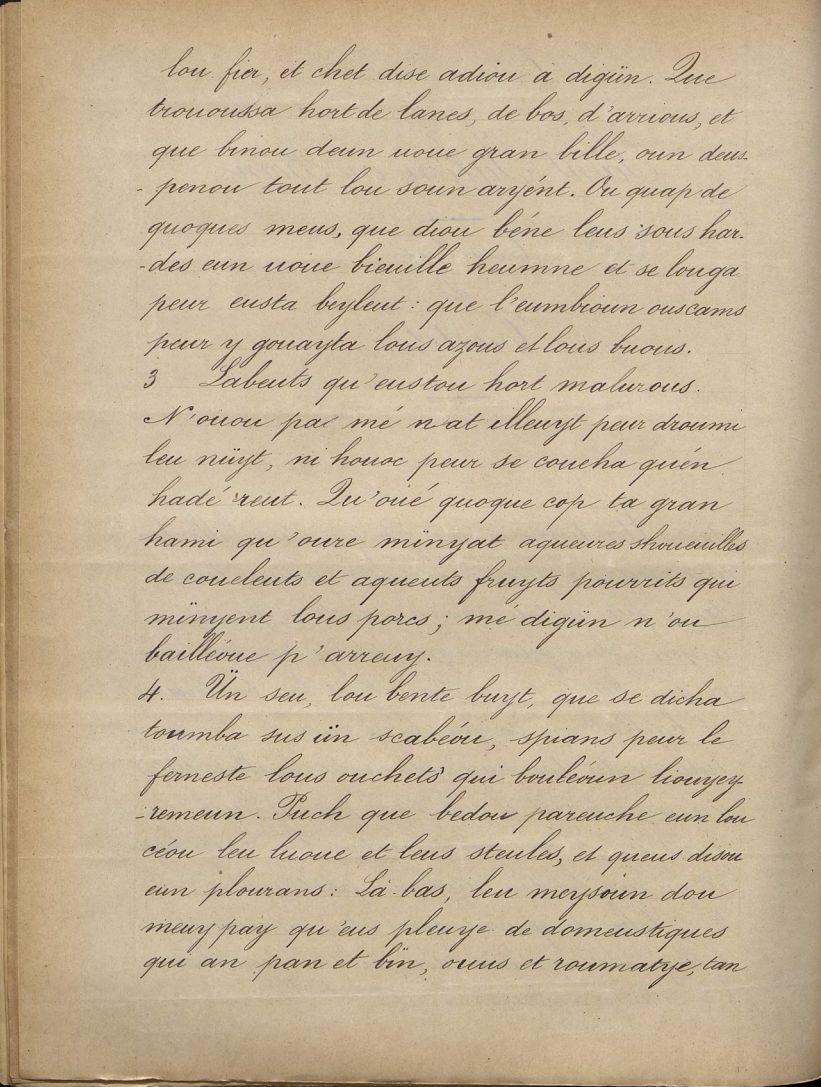 lou fier, et chet dise adiou à digün. Que
trououssa hort de lanes, de bos, d'arrious, et
que binou deun uoue gran bille, oun deus-
-penou tout lou soun aryént. Ou quap de
quoques meus, que diou béne leus sous har-
-des eun uoue bieuille heumne et se louga
peur eusta beyleut : que l'eumbioun ouscams
peur y gouayta lous azous et lous buous.
3 Labeuts qu'eustou hort malurous.
N'ouou pas mé nat lleuyt peur droumi
leu nüyt, ni houoc peur se coucha quén
hadé reut. Qu'oué quoque cop ta gran
hami qu'oure minyat aqueures shoueuilles
de coueleuts et aqueuts fruyts pourrits qui
minyent lous porcs ; mé digün n'ou
bailléoue p'arreuy.
4. Ün seu, lou bente buyt, que se dicha
toumba sus ün scabéou, spians peur le
ferneste lous ouchets qui bouléoun liouyey-
-remeun. Puch que bedou pareuche eun lou
céou leu luoue et leus steules, et queus disou
eun plourans : La-bas, leu meysoun dou
meuy pay qu'eus pleuye de domeustiques
qui an pan et bïn, ouus et roumatye, tan